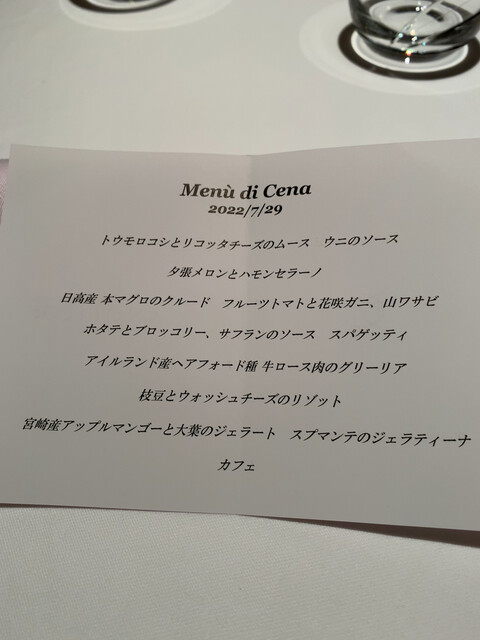 Menù di Cena
2022/7/29
トウモロコシとリコッタチーズのムース　ウニのソース
夕張メロンとハモンセラーノ
日高産 本マグロのクルード　フルーツトマトと花咲ガニ、山ワサビ
ホタテとブロッコリー、サフランのソース　スパゲッティ
アイルランド産ヘアフォード種 牛ロース肉のグリーリア
枝豆とウォッシュチーズのリゾット
宮崎産アップルマンゴーと大葉のジェラート　スプマンテのジェラティーナ
カフェ